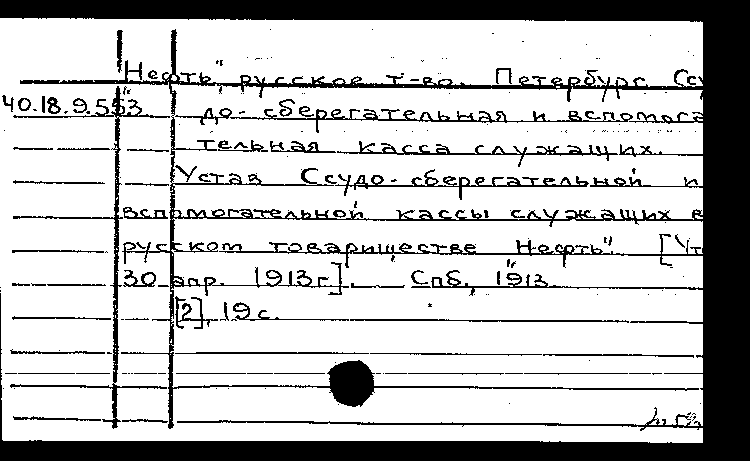 „Нефть", русское т-во. Петербург. Ссу
40.18.9.553 до-сберегательная и вспомога
тельная касса служащих.
Устав Ссудо-сберегательной и
вспомогательной кассы служащих в
русском товариществе „Нефть". [Ут
30 апр. 1913г]. Спб., 1913.
[2], 19 с.